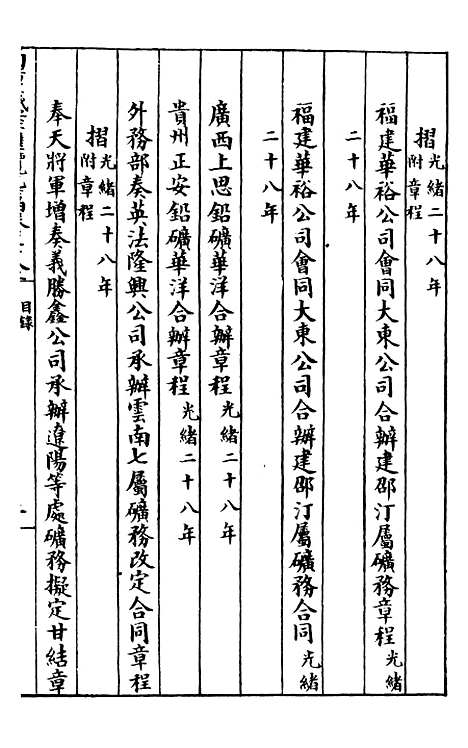 摺光緒二十八年
附章程
福建華裕公司會同大東公司合辦建邵汀屬礦務章程光緒
二十八年
福建華裕公司會同大東公司合辦建邵汀屬礦務合同光緒
二十八年
廣西上思鉛礦華洋合辦章程光緒二十八年
貴州正安鉛礦華洋合辦章程光緒二十八年
外務部奏英法隆興公司承辦雲南七屬礦務改定合同章程
摺光緒二十八年
附章程
奉天將軍增奏義勝鑫公司承辦遼陽等處礦務擬定甘結章
目錄